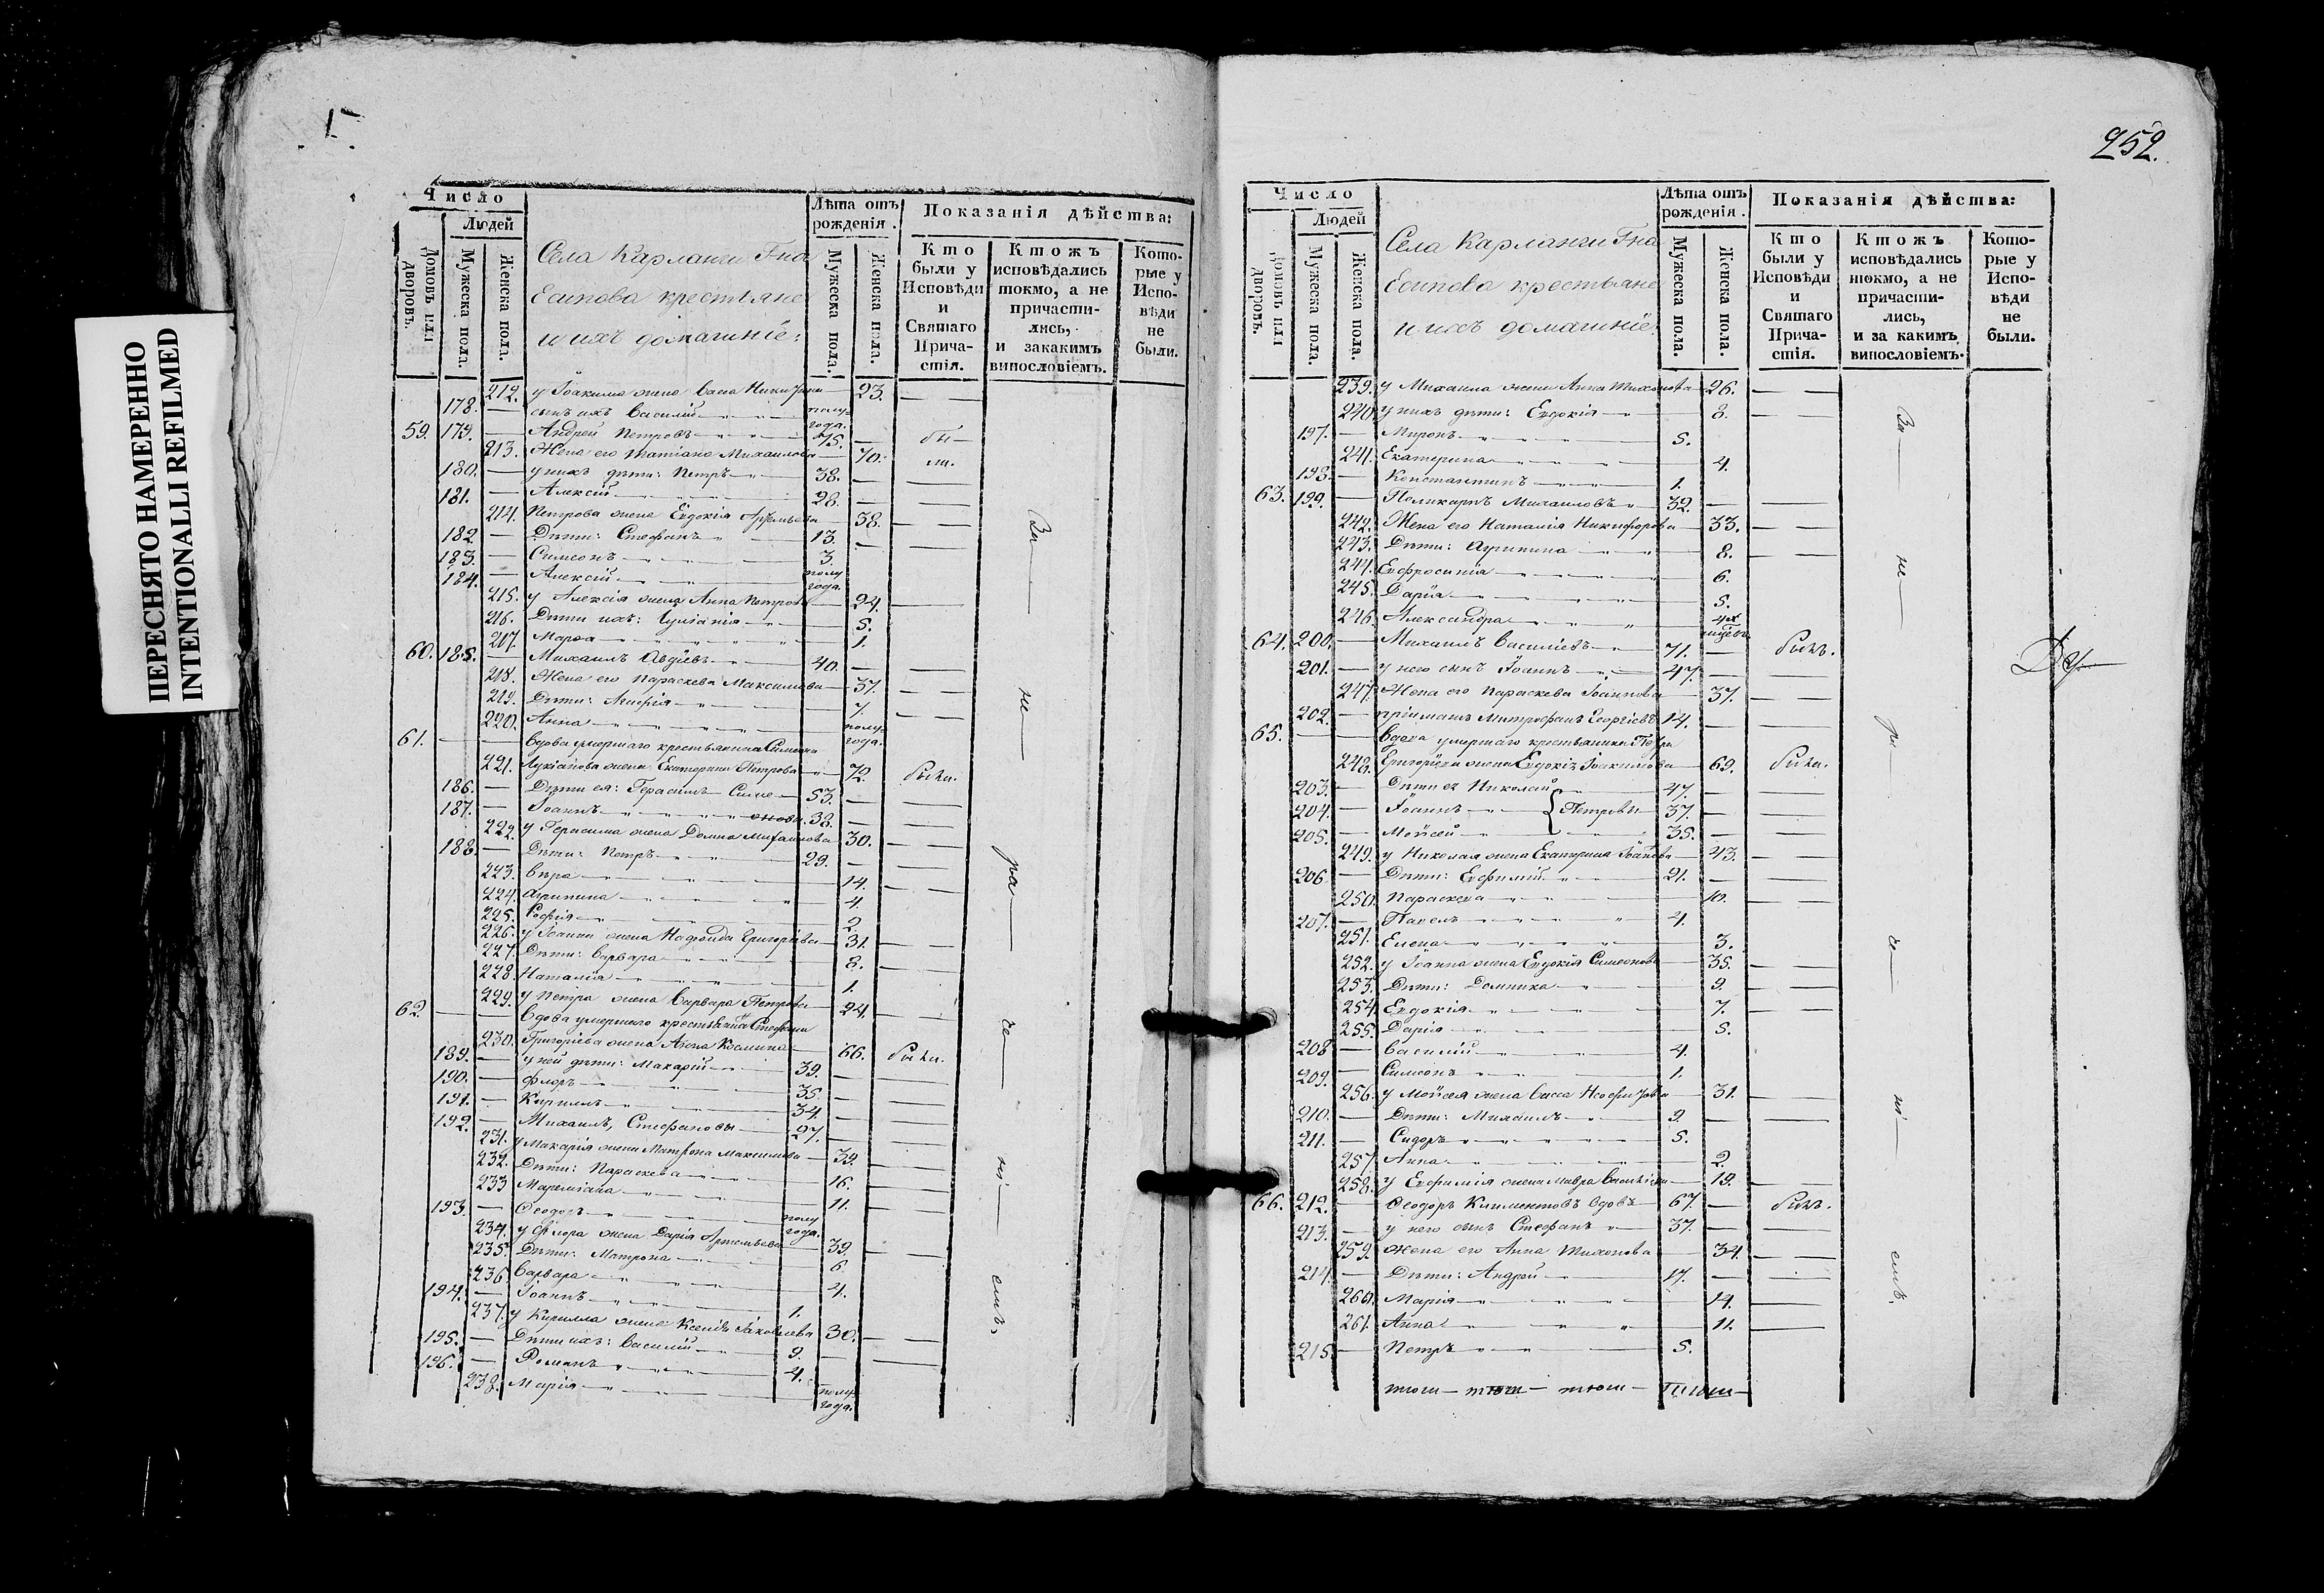 ПЕРЕСНЯТО НАМЕРЕННО
INTENTIONALLI REFILMED
Число
Людей
Домовъ или дворовъ.
Мужеска пола.
Женска пола.
Села Карланги Гна
Есипова крестьяне
и ихъ домашніе:
Лѣта отъ рожденія.
Мужеска пола.
Женска пола.
Показанія дѣйства:
Кто были у Исповѣди и Святаго Причастія.
Ктожъ исповѣдались токмо, а не причастились, и закакимъ винословіемъ.
Которые у Исповѣди не были.
212. у Іоакима жена Васса 23.
178. — сынъ ихъ Василій полугода.
59. 179. — Андрей Петровъ 75. — бы-
213. Жена его Татіана Михаилова 70. ли.
180. — у нихъ дѣти: Петръ 38. —
181. — Алексій 28. —
214. Петрова жена Евдокія 38. —
182. — Дѣти: Стефанъ 13. —
183. — Симеонъ 3.
184. — Алексій полугода.
215. у Алексія жена Анна Петрова 24. —
216. Дѣти ихъ: 5.
217. Марѳа 1.
60. 185. — Михаилъ Авдіевъ 40. —
218. Жена его Параскева Максимова 37. —
219. Дѣти: 7. —
220. Анна полугода.
61. — — Вдова умершаго крестьянина Симеона
221. Лукіанова жена Екатерина Петрова 72. была.
186. — Дѣти ея: Герасимъ Симе- 53. —
187. — Іоаннъ оновы. 38. —
222. у Герасима жена Домна Михаилова 30. —
188. — Дѣти: Петръ 29. —
223. Вѣра 14. —
224. Агрипина 4.
225. Софія 2.
226. у Іоанна жена Григоріева 31. —
227. Дѣти: Варвара 8. —
228. Наталія 1.
229. у Петра жена Варвара Петрова 24. —
62. — — Вдова умершаго крестьянина Стефана
230. Григоріева жена Анна Космина 66. была.
189. — у ней дѣти: Макарій 39. —
190. — Флоръ 35. —
191. — Кириллъ 34. —
192. — Михаилъ, Стефановы 27. —
231. у Макарія жена Матрона Максимова 39. —
232. Дѣти: Параскева 16. —
233. 11. —
193. — Ѳеодоръ полугода.
234. у Флора жена Дарія Артемьева 39. —
235. Дѣти: Матрона 6.
236. Варвара 4.
194. — Іоаннъ 1.
237. у Кирилла жена Ксенія Іаковлева 30. —
195. — Дѣти ихъ: Василій 9. —
196. — Романъ 4.
238. Марія полугода.
За — не — ра — че — ні — емъ.
252.
Число
Людей
Домовъ или дворовъ.
Мужеска пола.
Женска пола.
Села Карланги Гна
Есипова крестьяне
и ихъ домашніе:
Лѣта отъ рожденія.
Мужеска пола.
Женска пола.
Показанія дѣйства:
Кто были у Исповѣди и Святаго Причастія.
Ктожъ исповѣдались токмо, а не причастились, и за какимъ винословіемъ.
Которые у Исповѣди не были.
239. у Михаила жена Анна Тихонова 26. —
240. у нихъ дѣти: Евдокія 8. —
197. — Миронъ 5.
241. Екатерина 4.
198. — Константинъ 1.
63. 199. — Поликарпъ Михаиловъ 32. —
242. Жена его Наталія Никифорова 33. —
243. Дѣти: Агрипина 8. —
244. Евфросинія 6.
245. Дарія 5.
246. Александра 4х
64. 200. — Михаилъ Василіевъ 71. — былъ.
201. — у него сынъ Іоаннъ 47. —
247. Жена его Параскева Іоаннова 37. —
202. — пріимышъ Митрофанъ Георгіевъ 14. —
65. — — Вдова умершаго крестьянина Петра
248. Григоріева жена Евдокія Іоакимова 69. была.
203. — Дѣти ея Николай 47. —
204. — Іоаннъ } Петровы 37. —
205. — Мойсей 35. —
249. у Николая жена Екатерина 43. —
206. — Дѣти: Евфимій 21. —
250. Параскева 10. —
207. — Павелъ 4.
251. Елена 3.
252. у Іоанна жена Евдокія Симеонова 35. —
253. Дѣти: Домника 9. —
254. Евдокія 7. —
255. Дарія 5.
208. — Василій 4.
209. — Симеонъ 1.
256. у Мойсея жена Васса 31. —
210. — Дѣти: Михаилъ 9. —
211. — Сидоръ 5.
257. Анна 2.
258. у Евфимія жена Мавра Василіева 19. —
66. 212. — Ѳеодоръ Климентовъ вдовъ 67. — былъ.
213. — у него сынъ Стефанъ 37. —
259. жена его Анна Тихонова 34. —
214. — Дѣти: Андрей 17. —
260. Марія 14. —
261. Анна 11. —
215. — Петръ 5.
За — не — ра — че — ні — емъ.